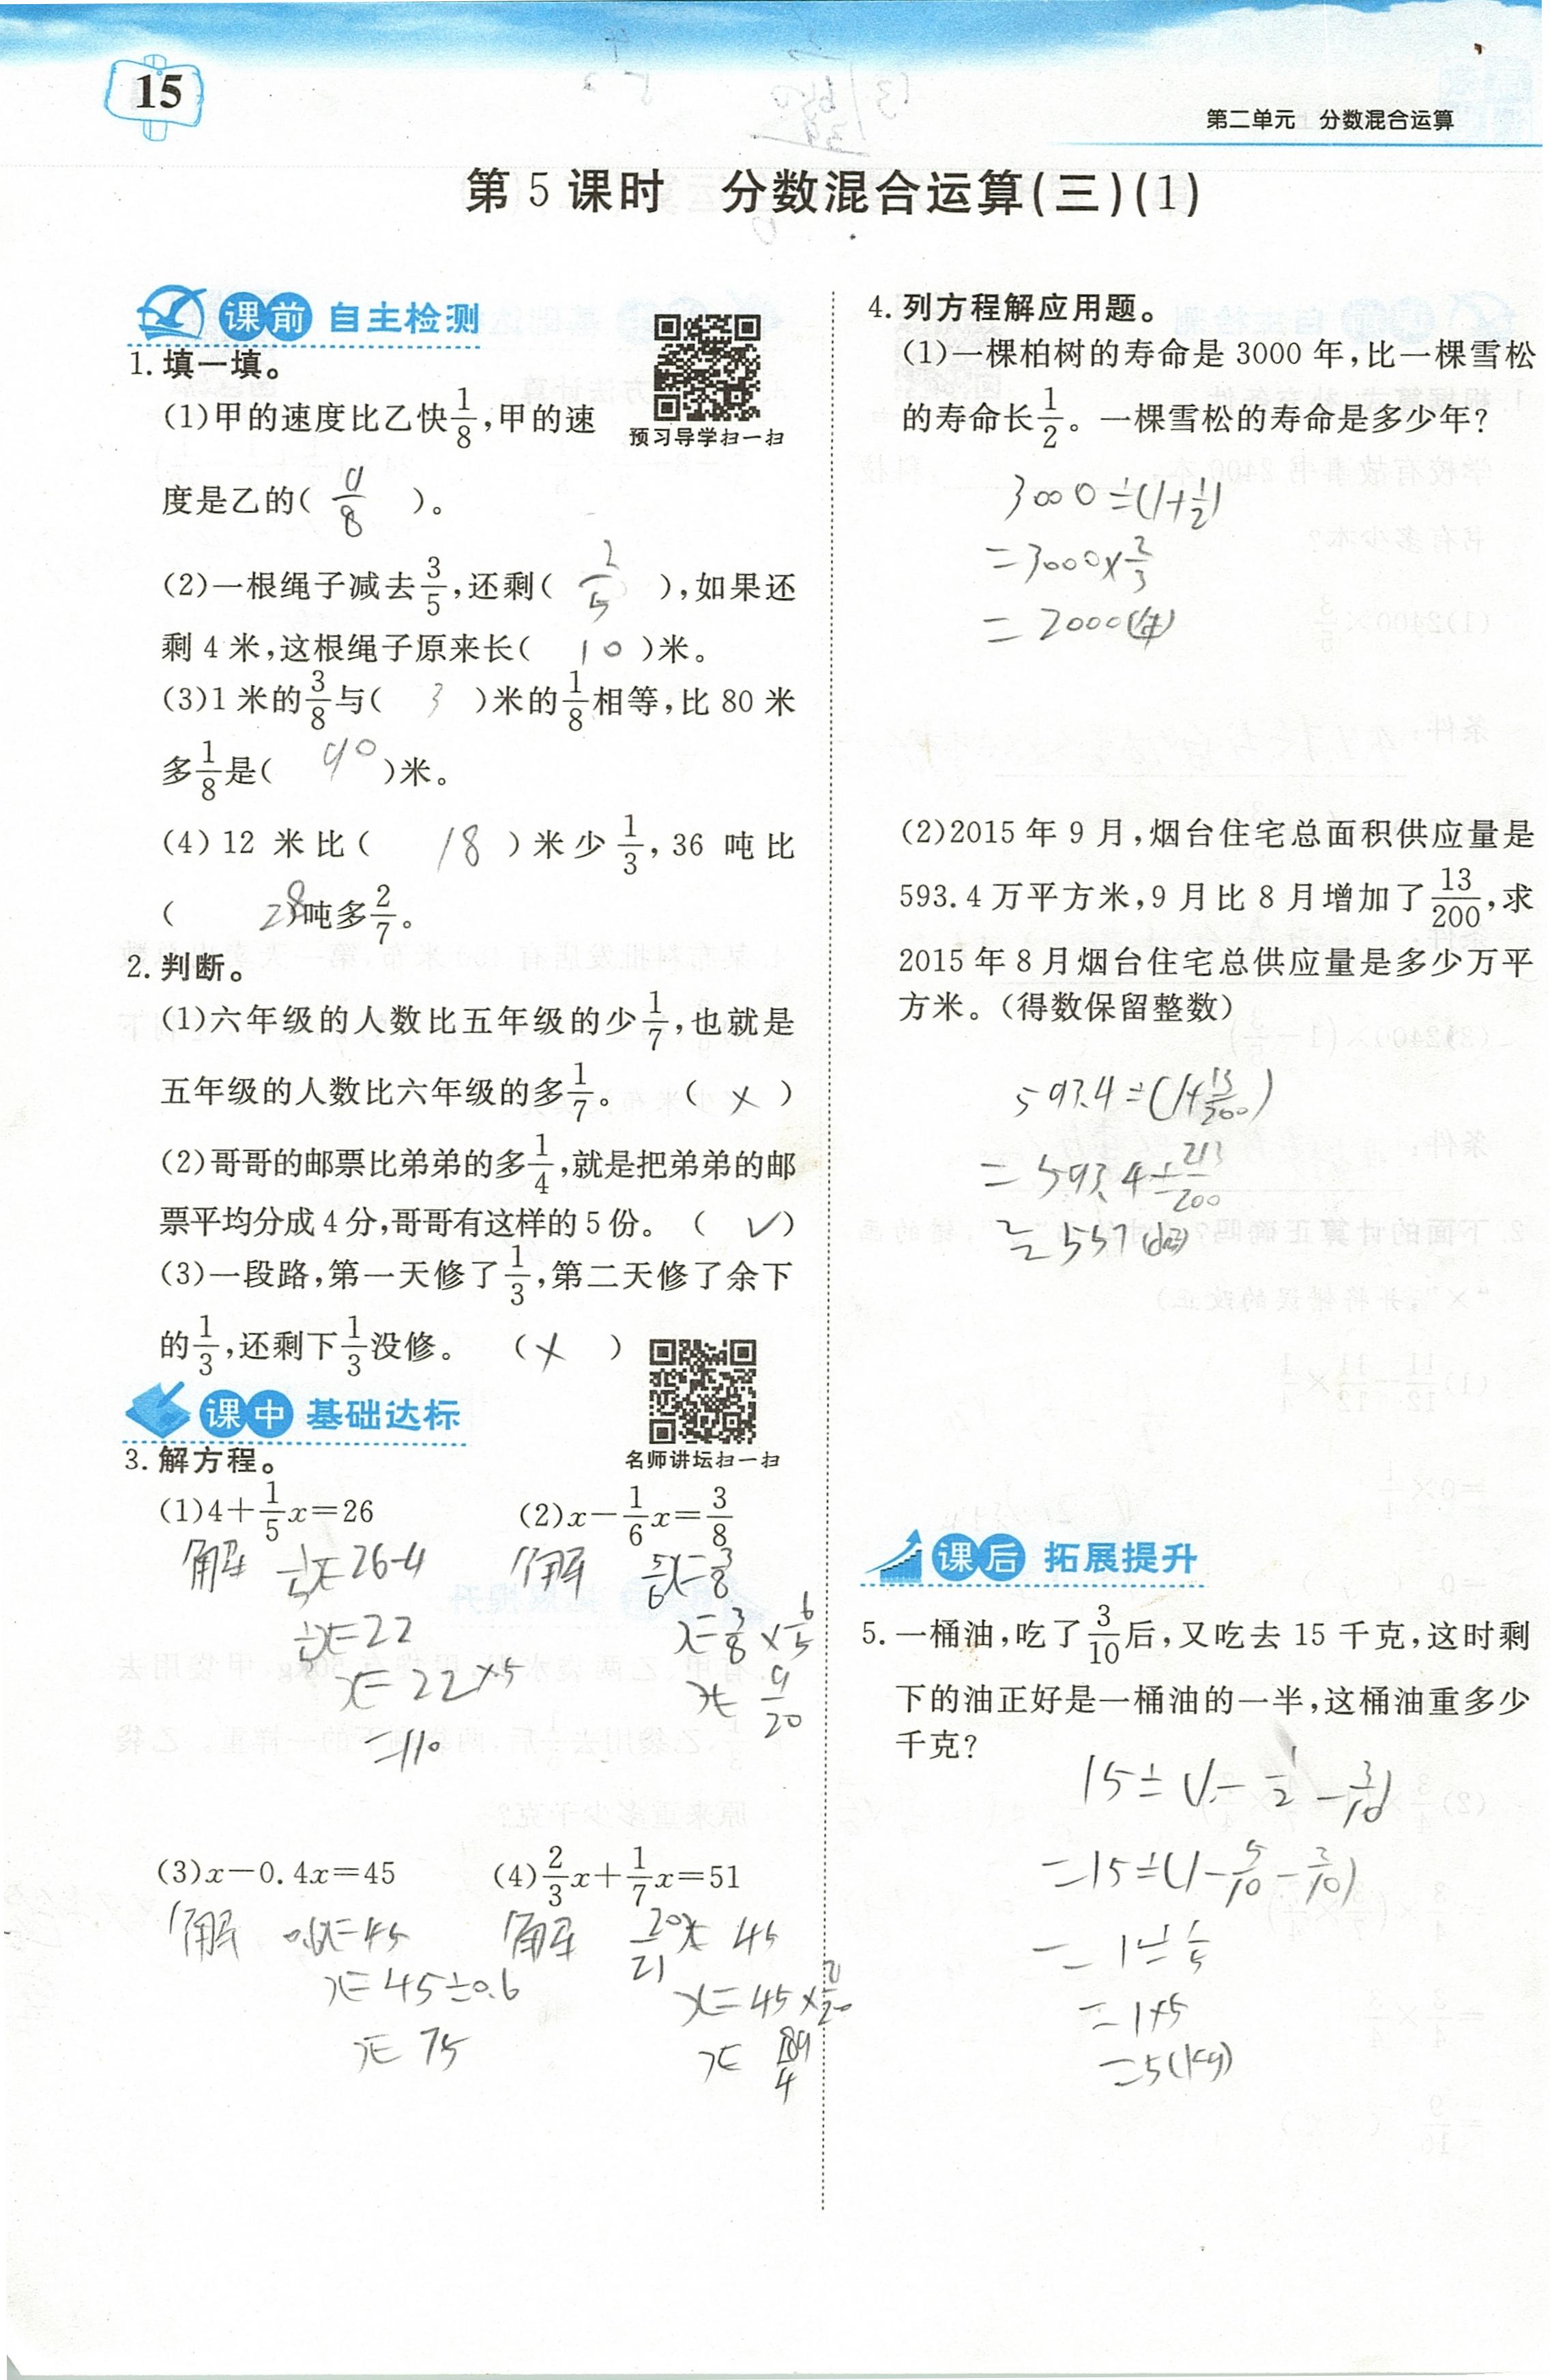 15
第二单元 分数混合运算
第5课时 分数混合运算(三)(1)
课前 自主检测
预习导学扫一扫
1. 填一填。
(1)甲的速度比乙快1/8,甲的速
度是乙的( 9/8 )。
(2)一根绳子减去3/5,还剩( 2/5 ),如果还
剩4米,这根绳子原来长( 10 )米。
(3)1米的3/8与( 3 )米的1/8相等,比80米
多1/8是( 90 )米。
(4)12米比( 18 )米少1/3,36吨比
( 28 )吨多2/7。
2. 判断。
(1)六年级的人数比五年级的少1/7,也就是
五年级的人数比六年级的多1/7。 ( × )
(2)哥哥的邮票比弟弟的多1/4,就是把弟弟的邮
票平均分成4分,哥哥有这样的5份。 ( ✓ )
(3)一段路,第一天修了1/3,第二天修了余下
的1/3,还剩下1/3没修。 ( × )
课中 基础达标
名师讲坛扫一扫
3. 解方程。
(1)4+1/5x=26
解 1/5x=26-4
1/5x=22
x=22×5
=110
(2)x-1/6x=3/8
解 5/6x=3/8
x=3/8×6/5
x=9/20
(3)x-0.4x=45
解 0.6x=45
x=45÷0.6
x=75
(4)2/3x+1/7x=51
解 20/21x=45
x=45×2/20
x=189/4
4. 列方程解应用题。
(1)一棵柏树的寿命是3000年,比一棵雪松
的寿命长1/2。一棵雪松的寿命是多少年?
3000÷(1+1/2)
=3000×2/3
=2000(年)
(2)2015年9月,烟台住宅总面积供应量是
593.4万平方米,9月比8月增加了13/200,求
2015年8月烟台住宅总供应量是多少万平
方米。(得数保留整数)
593.4÷(1+13/200)
=593.4÷213/200
≈557
课后 拓展提升
5. 一桶油,吃了3/10后,又吃去15千克,这时剩
下的油正好是一桶油的一半,这桶油重多少
千克?
15÷(1-1/2-3/10)
=15÷(1-5/10-3/10)
=1÷1/5
=1×5
=5(kg)